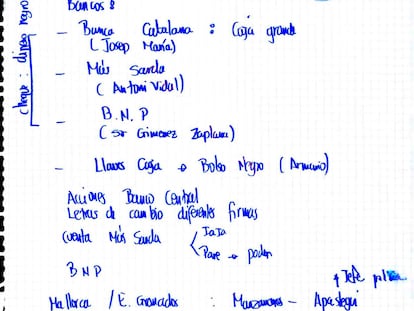 Bancos :
cheque : dinero negro
- Banca Catalana : Caja grande
( Josep María)
- Más Sarda
( Antoni Vidal)
- B.N.P
( Sr Gimenez Zaplana)
- Llaves Caja → Bolso Negro ( Armario)
Acciones Banco Central
Letras de cambio diferentes firmas
Cuenta Más Sarda < JaJa
Pare → poder
BNP
Mallorca / E. Granados : Manzanares - Apastegui